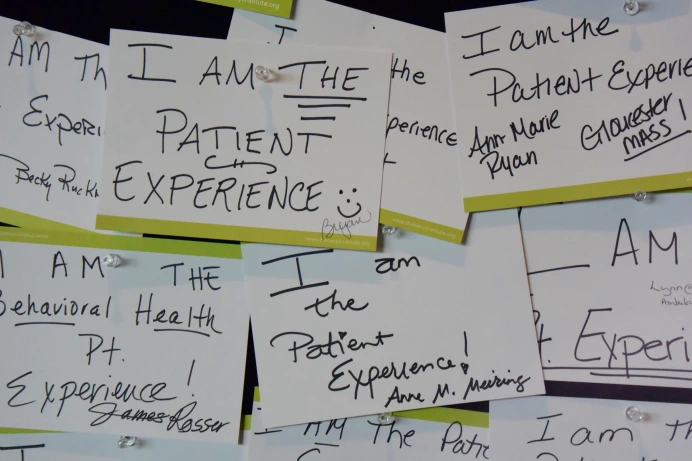 AM
Experi
Becky
I AM THE
PATIENT
EXPERIENCE
Bryan
the
perience
I am the
Patient Experie
Ann Marie
Ryan
Gloucester
MASS!
I AM THE
Behavioral Health
Pt.
Experience!
James Rosser
I am
the
Patient
Experience!
Anne M. Meising
AM
Experi
AM the Patie
I am